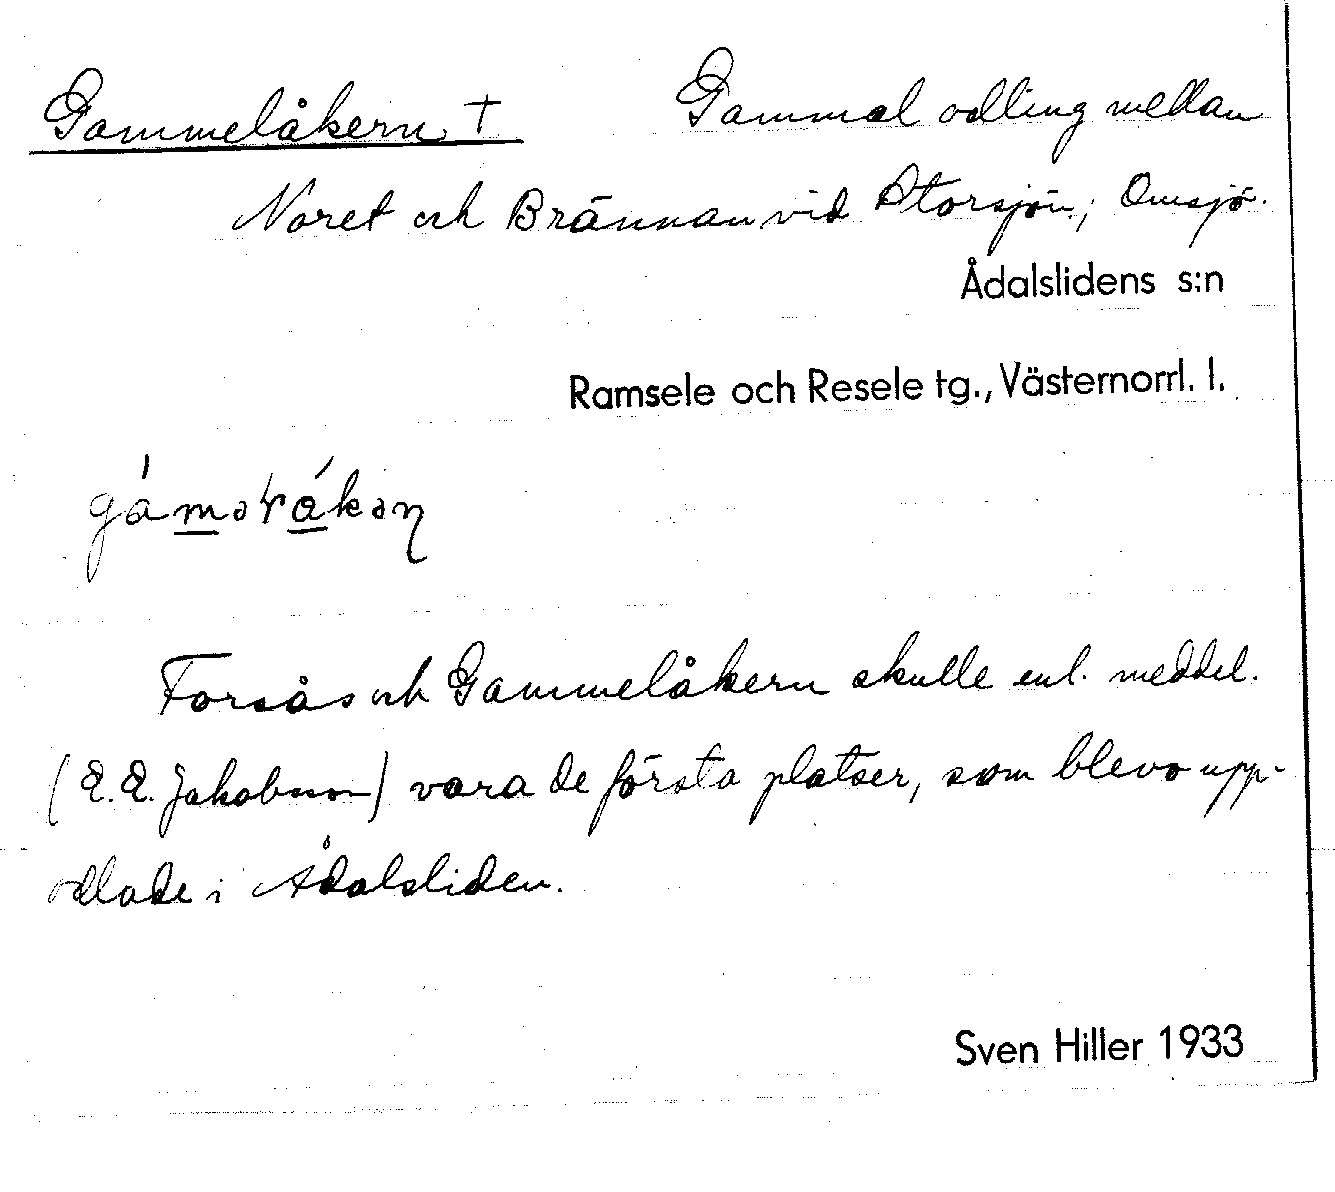 Gammelåkern + Gammal odling mellan
Noret och Brännan vid Storsjön, Omsjö.
Ådalslidens s:n
Ramsele och Resele tg., Västernorrl. l.
Forsås och Gammelåkern skulle enl. meddel.
(E. E. Jakobsson) vara de första platser, som blevo upp-
odlade i Ådalsliden.
Sven Hiller 1933